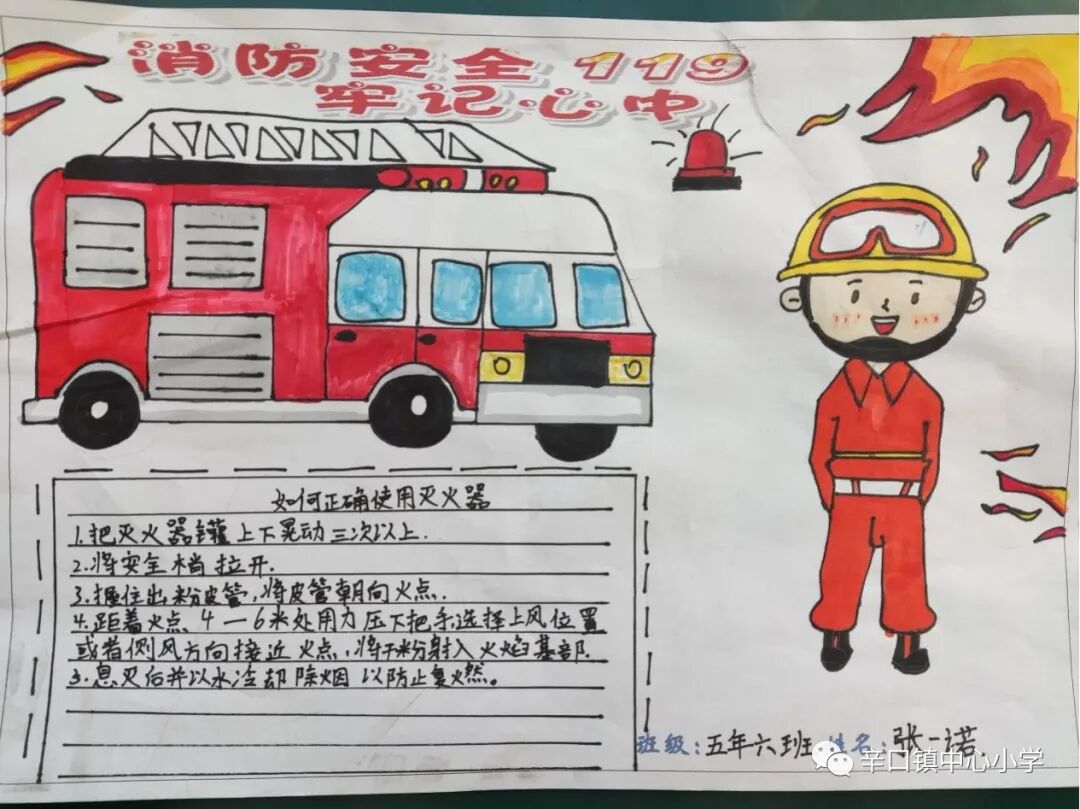 消防安全119
牢记心中
如何正确使用灭火器
1.把灭火器罐上下晃动三次以上.
2.将安全梢拉开.
3.握住出粉皮管,将皮管朝向火点.
4.距着火点4—6米处用力压下把手,选择上风位置
或者侧风方向接近火点,将干粉射入火焰基部.
3.息灭后并以水冷却除烟以防止复燃。
班级:五年六班 姓名:张一诺
辛口镇中心小学